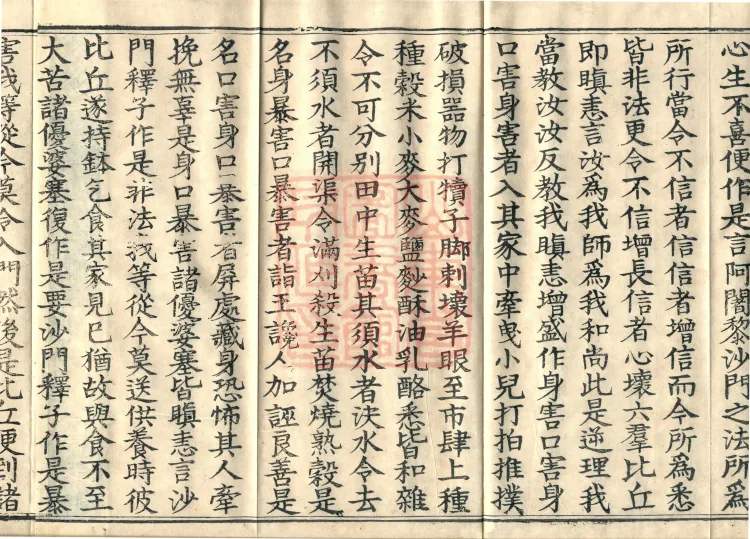 心生不喜便作是言阿闍黎沙門之法所爲
所行當令不信者信信者增信而今所爲悉
皆非法更令不信增長信者心壞六羣比丘
即瞋恚言汝爲我師爲我和尚此是逆理我
當教汝汝反教我瞋恚增盛作身害口害身
口害身害者入其家中牽曳小兒打拍推撲
破損器物打犢子脚刺壞羊眼至市肆上種
種穀米小麥大麥鹽麨酥油乳酪悉皆和雜
令不可分別田中生苗其須水者決水令去
不須水者開渠令滿刈殺生苗焚燒熟穀是
名身暴害口暴害者詣王讒人加誣良善是
名口害身口暴害者屏處藏身恐怖其人牽
挽無辜是身口暴害諸優婆塞皆瞋恚言沙
門釋子作是非法我等從今莫送供養時彼
比丘遂持鉢乞食其家見已猶故與食不至
大苦諸優婆塞復作是要沙門釋子作是暴
害我等從今莫令入門然後是比丘便到諸